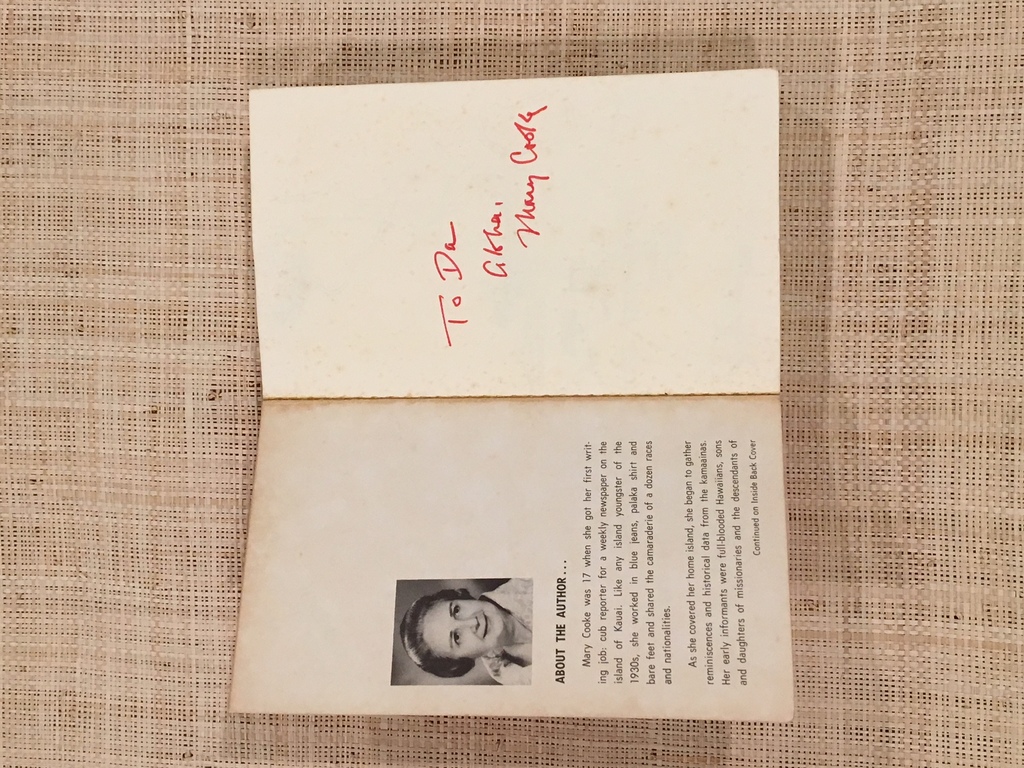 ABOUT THE AUTHOR...
Mary Cooke was 17 when she got her first writ-
ing job: cub reporter for a weekly newspaper on the
island of Kauai. Like any island youngster of the
1930s, she worked in blue jeans, palaka shirt and
bare feet and shared the camaraderie of a dozen races
and nationalities.
As she covered her home island, she began to gather
reminiscences and historical data from the kamaainas.
Her early informants were full-blooded Hawaiians, sons
and daughters of missionaries and the descendants of
Continued on Inside Back Cover
To Da
Aloha,
Mary Cooke